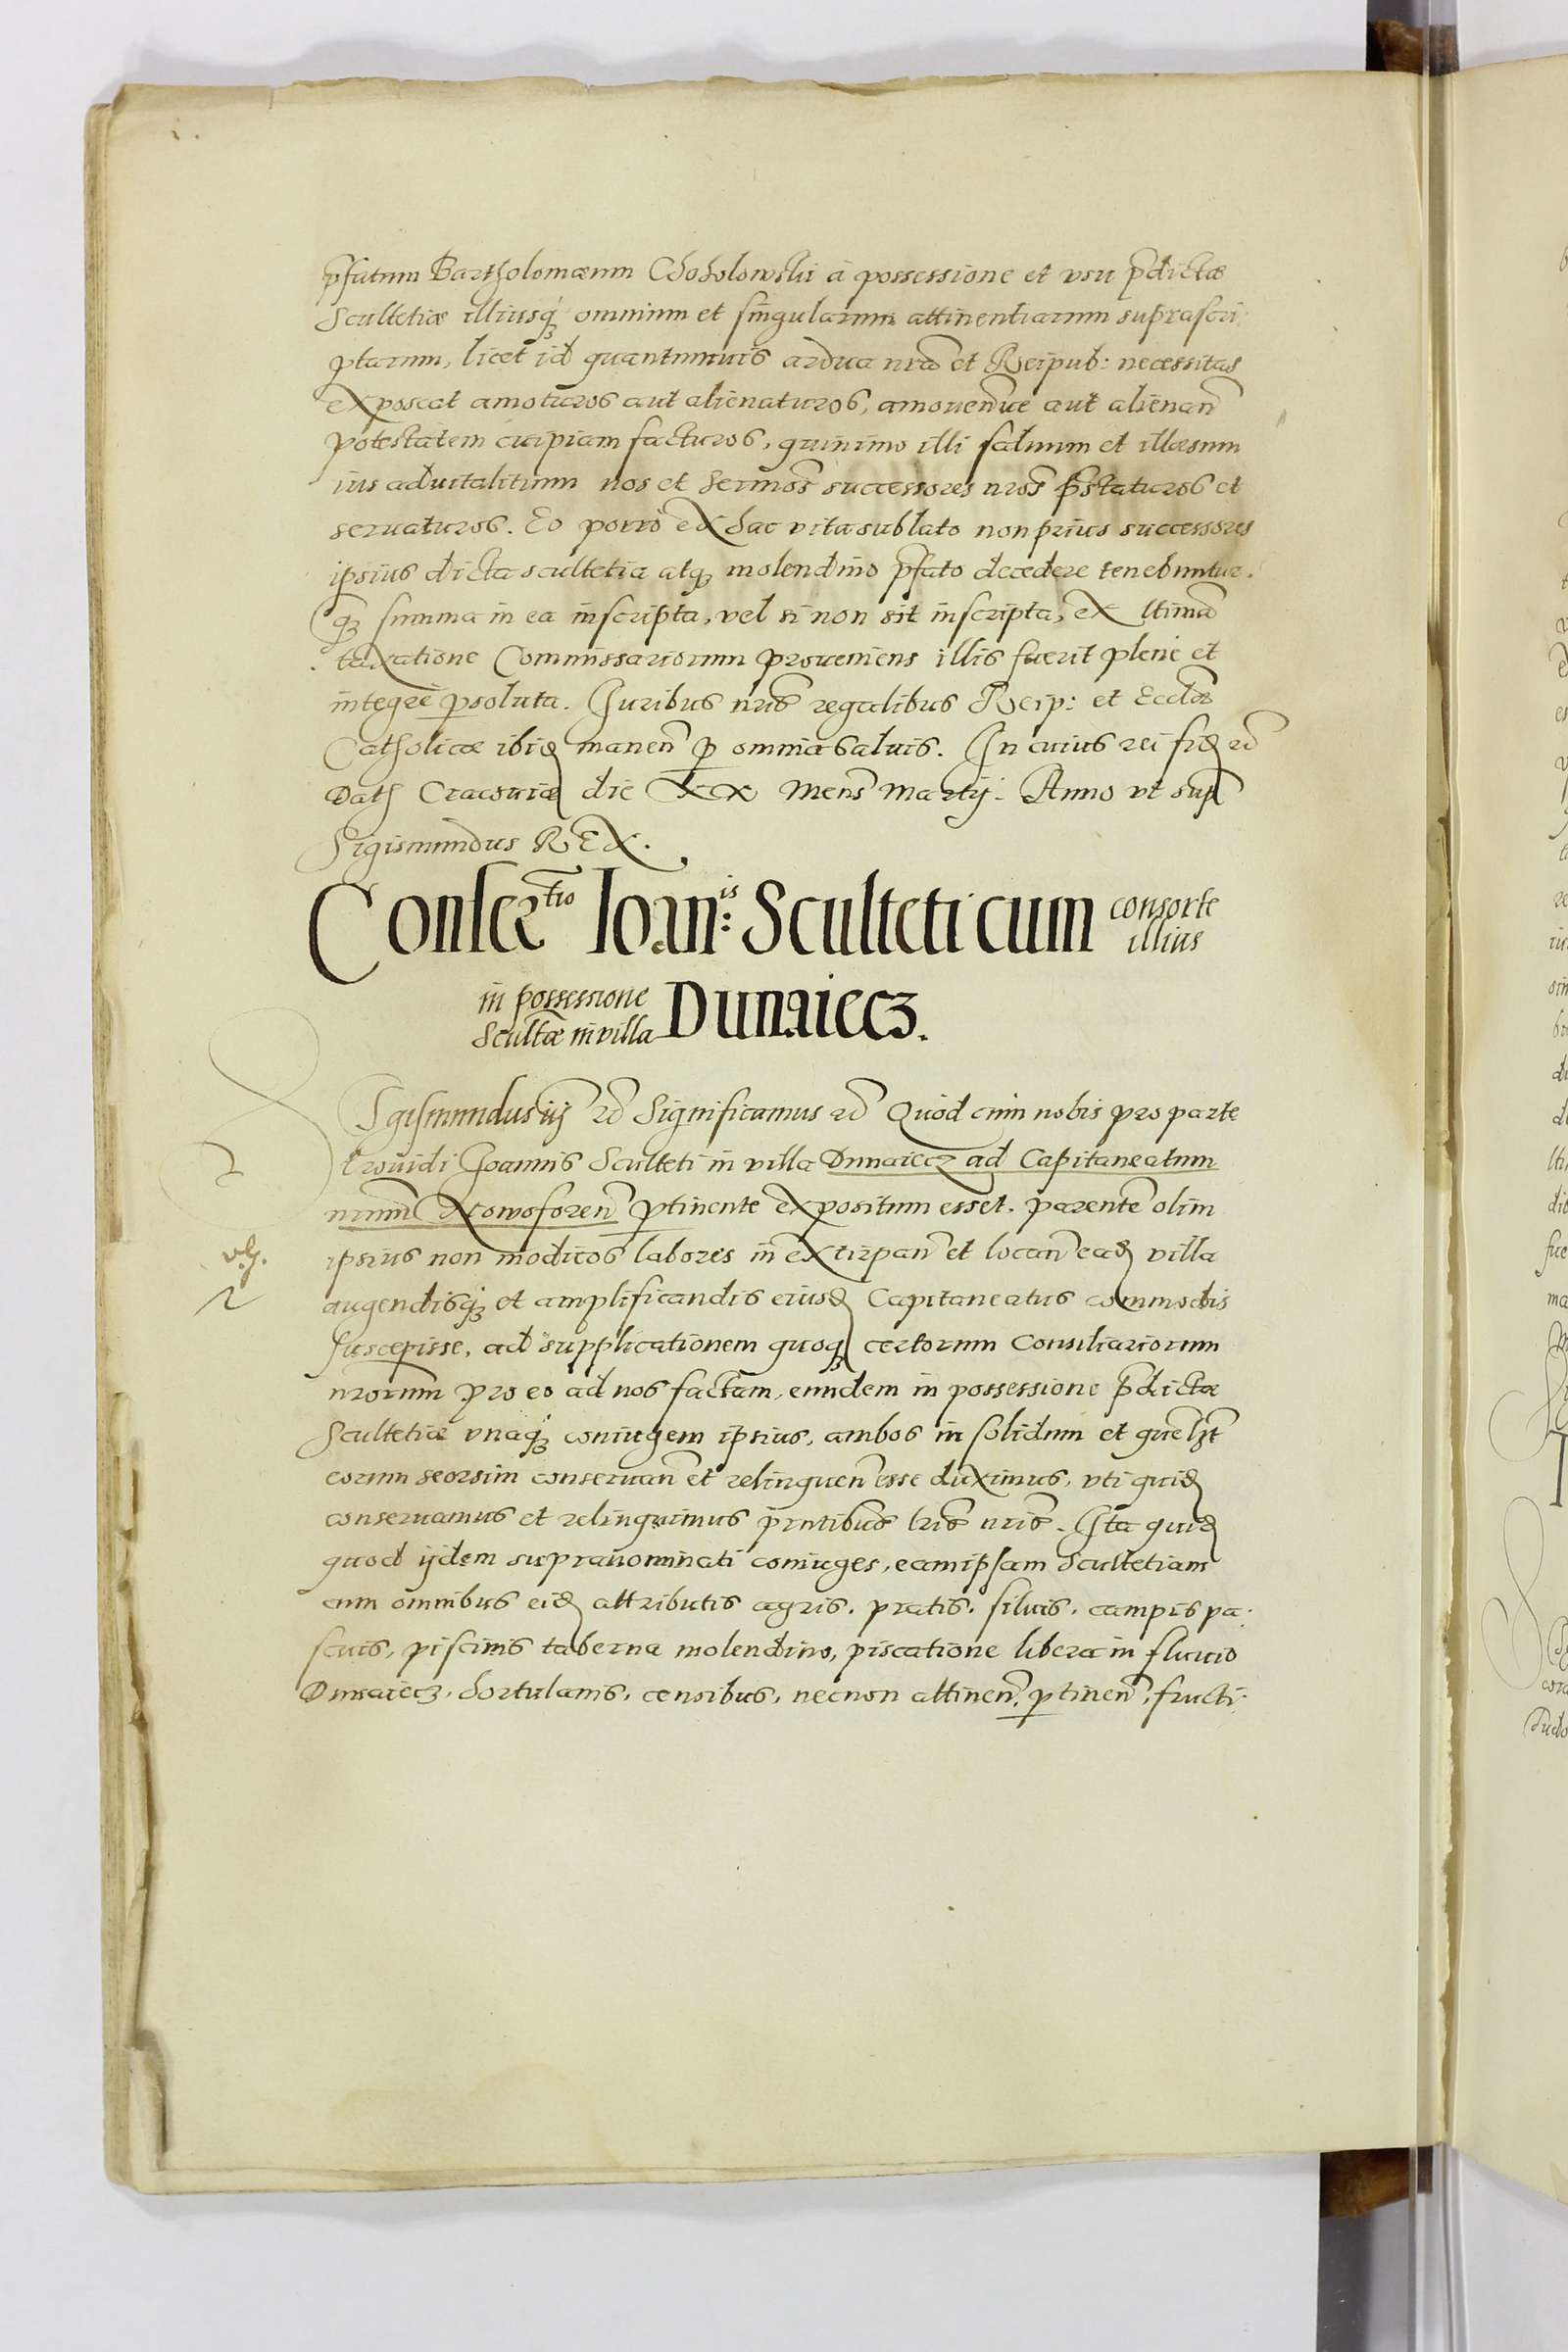 p̄fatum Bartholomæum Chocholowski à possessione et vsu p̄dictæ
Scultetiæ illiusq́ꝫ omnium et singularum attinentiarum suprascri
ptarum, licet id quantumuis ardua nrã et Reipub: necessitas
exposcat amoturos aut alienaturos, amouendũe aut alienan̄
potestatem cuipiam facturos, quinimo illi saluum et illæsum
ius aduitalitium nos et Sermõs successores nrõs p̄staturos et
seruaturos. Eo porrò ex hac vita sublato non prius successores
ipsius dicta scultetia atqꝫ molendino p̄fato decedere tenebuntur.
qꝫ summa in ea inscripta, vel si non sit inscripta, ex ltimã
taxatione Commissariorum proueniens illis fuerit plenè et
integrè ꝑsoluta. Iuribus nrĩs regalibus Reip: et Ecclæ̃
Catholicæ ibid manen̄ ꝑ omnia saluis. In cuius rei fid etc̃
Dat Cracouiæ die XX Mens̄ Martij. Anno vt sup̃
Sigismundus REX.
Conserũtio Ioanis: Sculteti cum consorte
illius
in possessione
Scultæ̃ in villa Dunaiecz.
Sigismundus iij etc̃ Significamus etc̃ Quòd cum nobis pro parte
prouidi Ioannis Sculteti in villa Dunaiecz ad Capitaneatum
nrum̃ Nowoforen̄ ꝑtinente expositum esset. parentẽ olim
ipsius non modicos labores in extirpan̄ et locan̄ ead villa
augendisq́ꝫ et amplificandis eiusd Capitaneatus commodis
suscepisse, ad supplicationem quoqꝫ certorum Consiliariorum
nrorum̃ pro eo ad nos factam, eundem in possessione p̄dictæ
Scultetiæ vnaq́ꝫ coniugem ipsius, ambos in solidum et quẽlꝫt
eorum seorsim conseruan̄ et relinquen̄ esse duximus, vti quid
conseruamus et relinquimus p̄ntibus lrĩs nrĩs. Ita quid
quod ijdem supranominati coniuges, eamipsam Scultetiam
cum omnibus eid attributis agris. pratis. siluis. campis pa.
scuis, piscinis taberna molendino, piscatione libera in fluuio
Dunaiecz. hortulanis. censibus, necnon attinen̄. ꝑtinen̄, fructi.